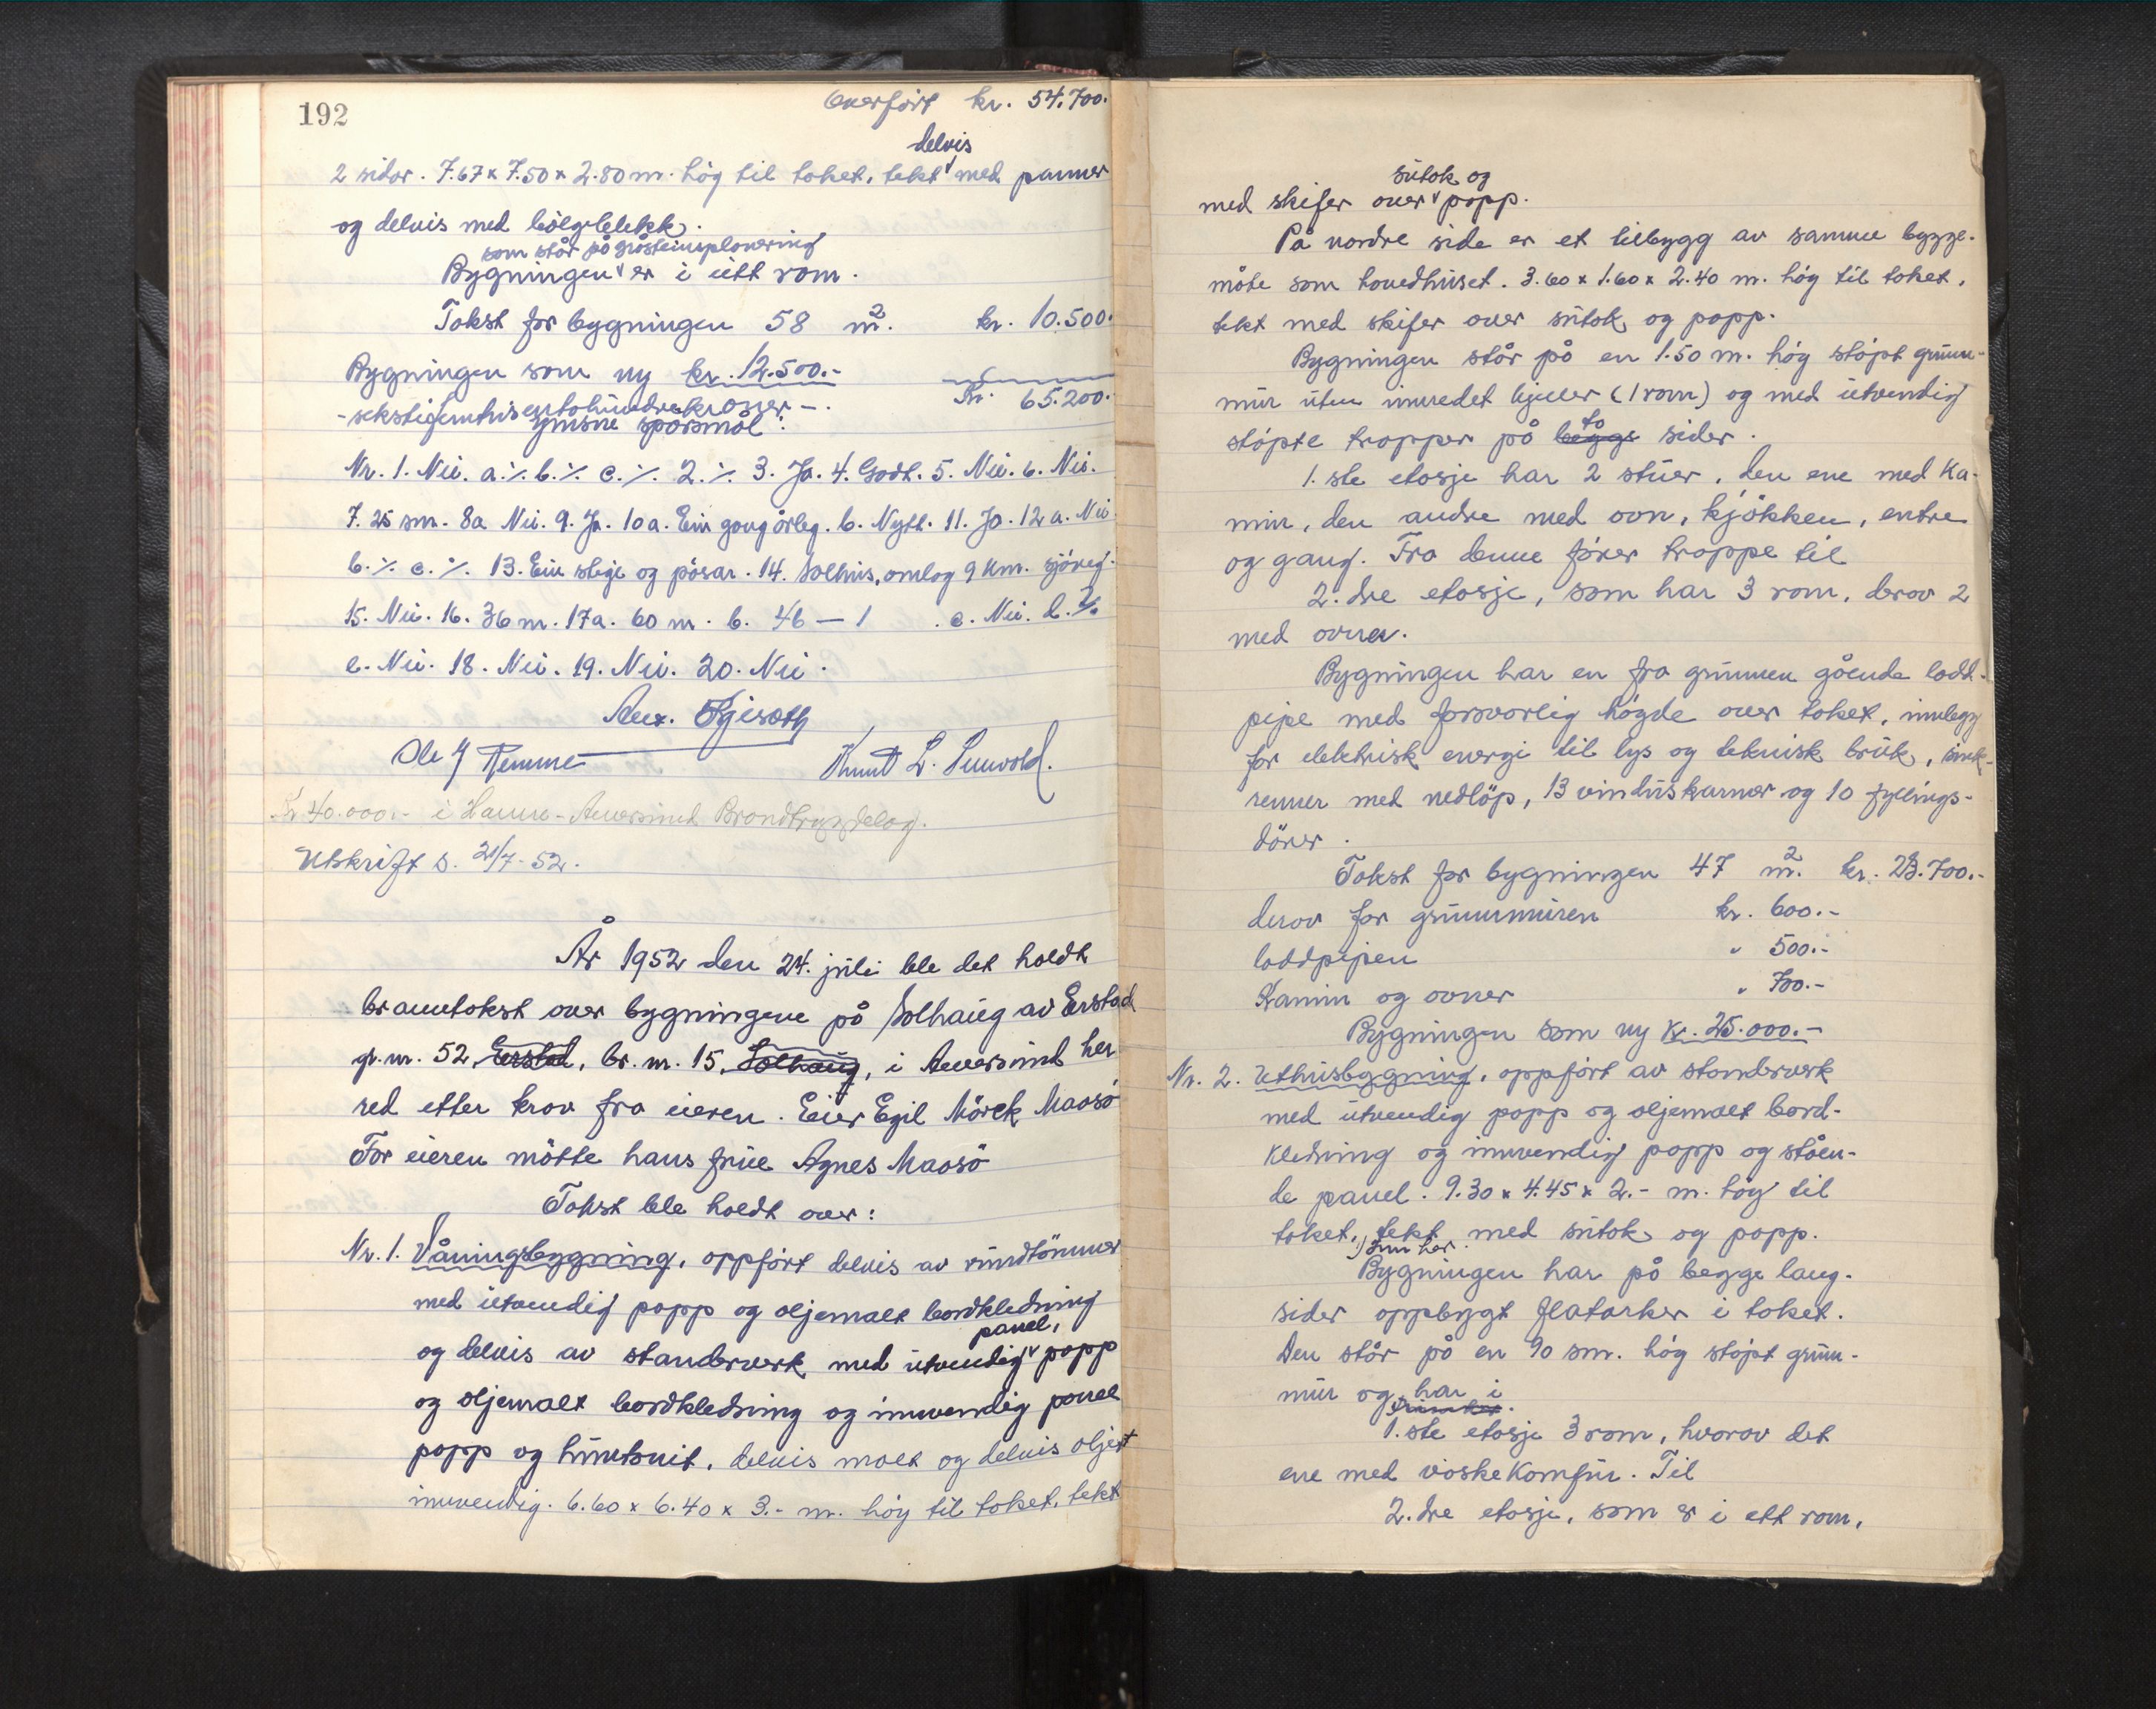 192
Overført kr. 54.700.
delvis
2 sidor. 7.67 x 7.50 x 2.80 m. høg til taket, tekt med panner
og delvis med bølgeblekk.
som står på gråsteinsplanering
Bygningen er i eitt rom.
Takst for bygningen 58 m². kr. 10.500.
Bygningen som ny kr. 12.500.-
Kr. 65.200.
-sekstifemtusentohundrekroner-.
Ymsne spørsmål:
Nr. 1. Nei. a. ٪ b. ٪ c. ٪ 2. ٪ 3. Ja. 4. Godt. 5. Nei. 6. Nei.
7. 25 sm. 8a Nei. 9. Ja. 10a. Ein gong årleg. b. Nytt. 11. Ja. 12 a. Nei
b. ٪ c. ٪ 13. Ein stige og pøsar. 14. Solhus, omlag 9 km. sjøveg.
15. Nei. 16. 36 m. 17a. 60 m. b. 46 — 1 . c. Nei. d. ٪
e. Nei. 18. Nei. 19. Nei. 20. Nei.
Ole J Remme
Knut L.
Kr 40.000.- i Hamre-Åsane
Utskrift s. 21/7-52.
År 1952 den 24. juli ble det holdt
branntakst over bygningene på Solhaug av Erstad
gr. nr. 52 Erstad, br. nr. 15, Solhaug, i her
red etter krav fra eieren. Eier Egil Mørck Maasø
For eieren møtte hans frue Agnes Maasø
Takst ble holdt over:
Nr. 1. Våningsbygning, oppført delvis av rundtømmer
med utvendig papp og oljemalt bordkledning
panel,
og delvis av standerverk med utvendig papp
og oljemalt bordkledning og innvendig panel
papp og huntonit, delvis malt og delvis oljet
innvendig. 6.60 x 6.40 x 3.- m. høg til taket, tekt
sutak og
med skifer over papp.
På nordre side er et tilbygg av samme bygge-
måte som hovedhuset. 3.60 x 1.60 x 2.40 m. høg til taket,
tekt med skifer over sutak og papp.
Bygningen står på en 1.50 m. høg støpt grunn-
mur uten innredet kjeller (1 rom) og med utvendig
to
støpte trapper på begge sider.
1. ste etasje har 2 stuer, den ene med ka-
min, den andre med ovn, kjøkken, entre
og gang. Fra denne fører trappe til
2. dre etasje, som har 3 rom, derav 2
med ovner.
Bygningen har en fra grunnen gående lodd-
pipe med forsvarlig høgde over taket, innlegg
for elektrisk energi til lys og teknisk bruk, sink-
renner med nedløp, 13 vinduskarmer og 10 fyllings-
dører.
Takst for bygningen 47 m². kr. 23.700.-
derav for grunnmuren kr. 600.-
loddpipen " 500.-
Kamin og ovner " 700.-
Bygningen som ny kr. 25.000.-
Nr. 2. Uthusbygning, oppført av standerverk
med utvendig papp og oljemalt bord-
kledning og innvendig papp og ståen-
de panel. 9.30 x 4.45 x 2.- m. høg til
taket, tekt med sutak og papp.
Bygningen har på begge lang-
sider oppbygt flatarker i taket.
Den står på en 90 sm. høg støpt grunn-
mur og har i
1. ste etasje 3 rom, hvorav det
ene med vaskekomfur. Til
2. dre etasje, som er i ett rom,